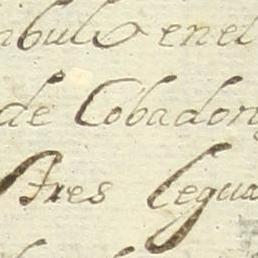 en el
de Cobadon
tres legua